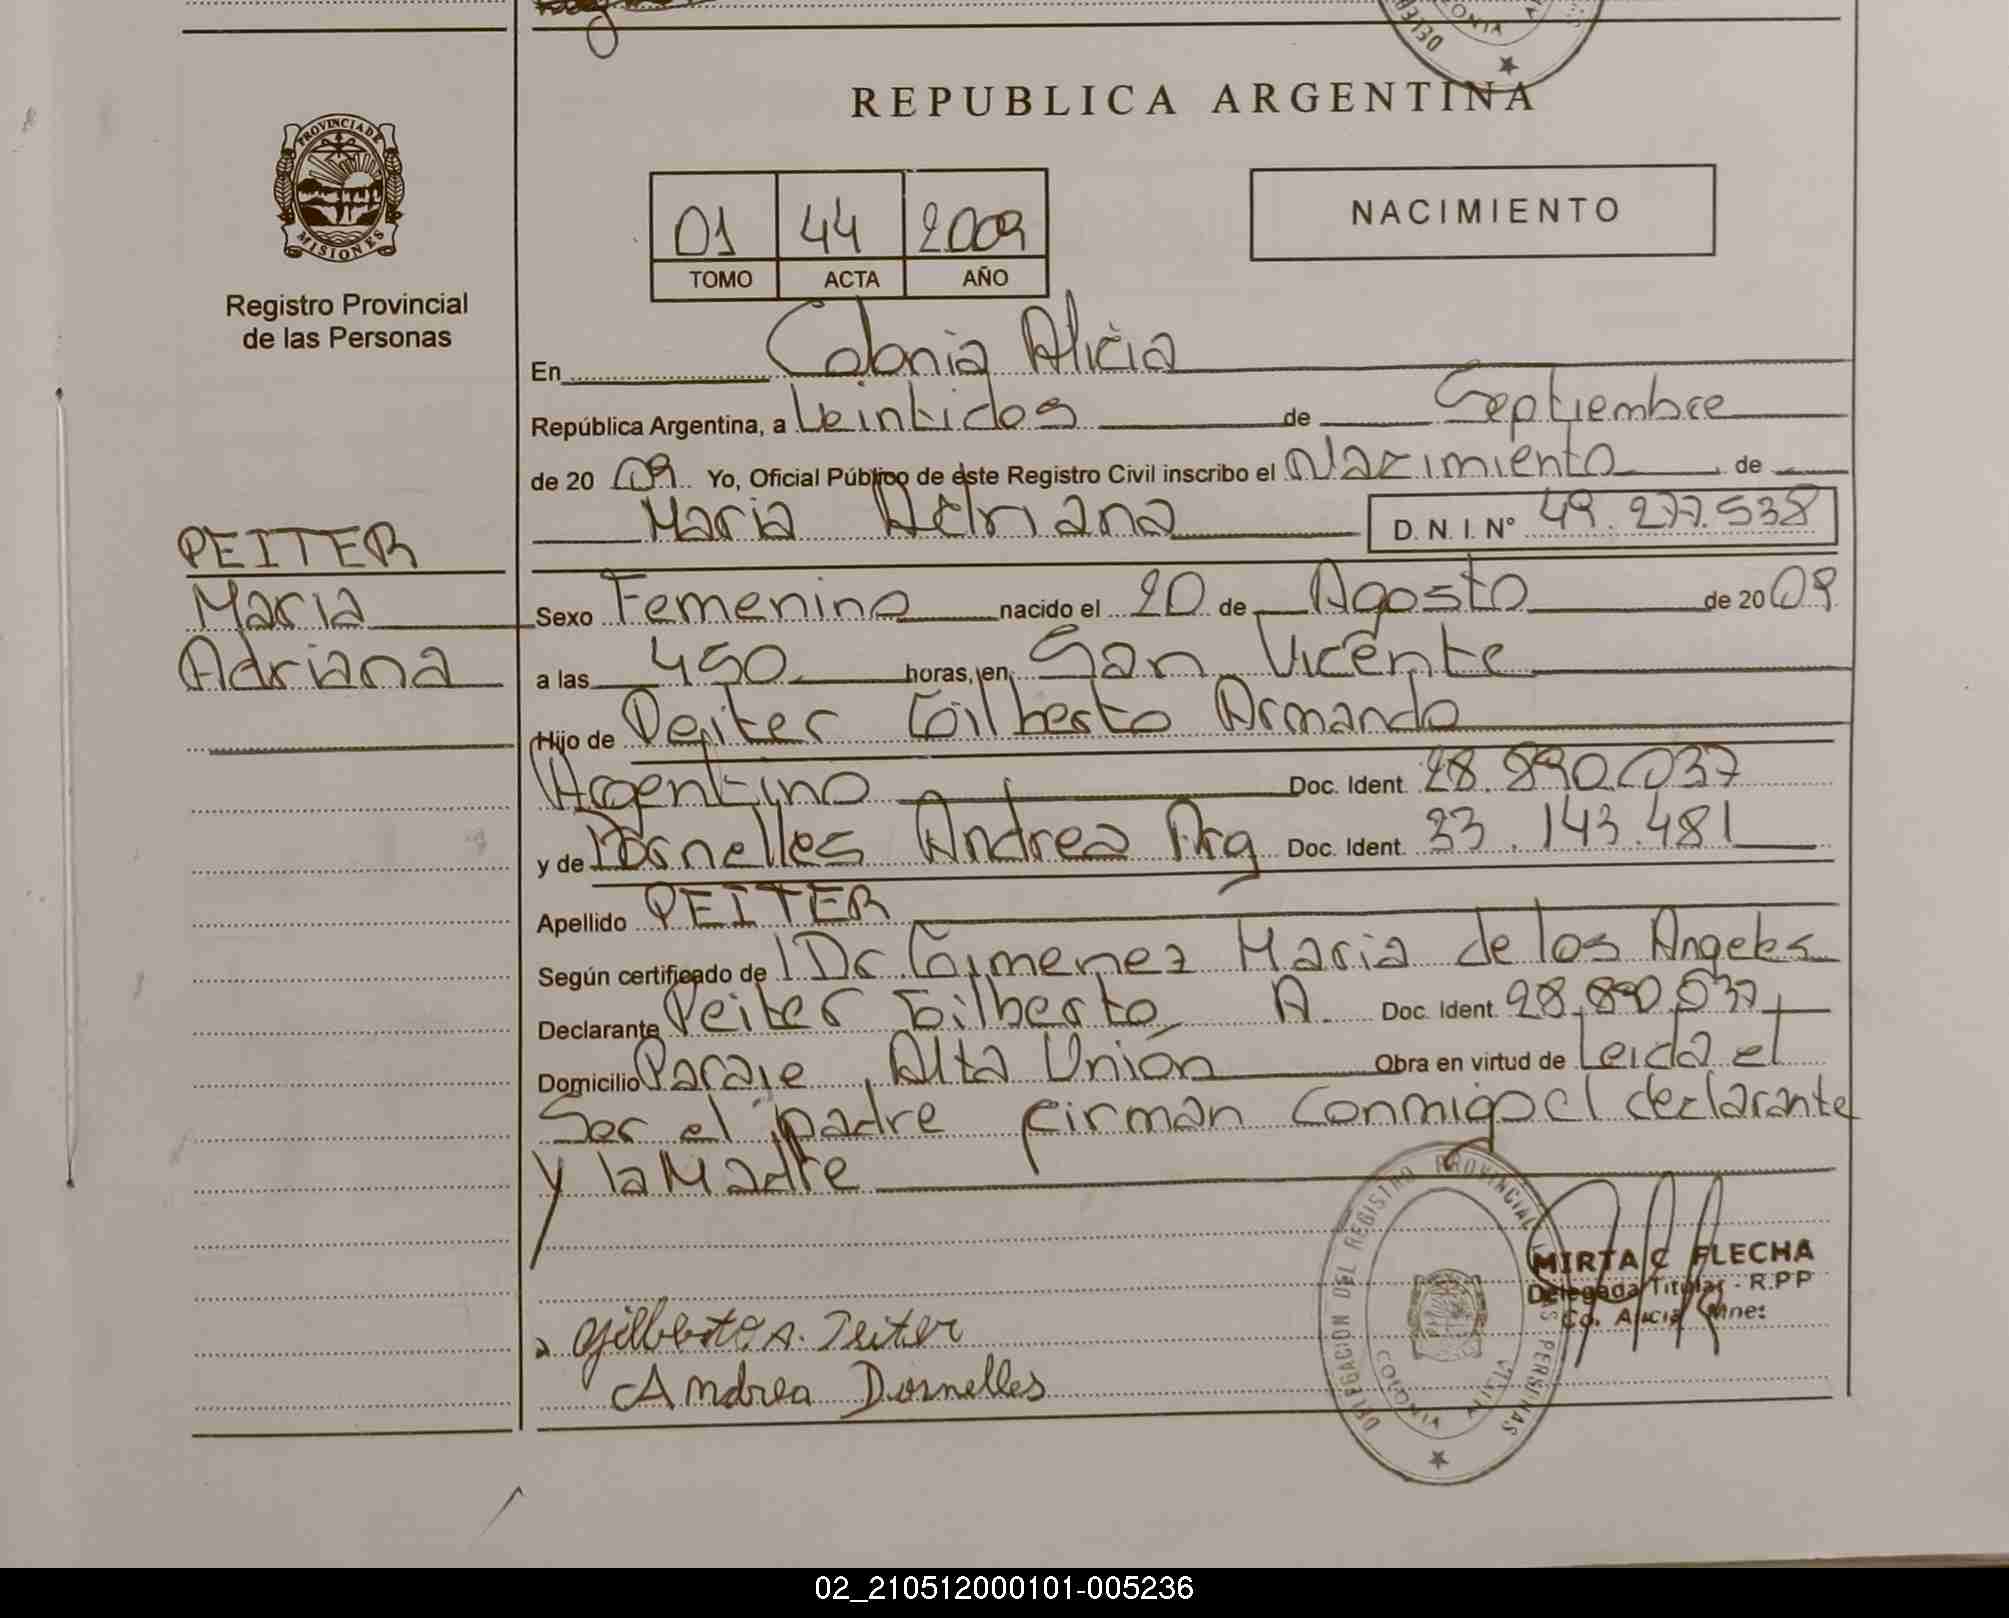 REPUBLICA ARGENTINA
PROVINCIA DE
MISIONES
Registro Provincial
de las Personas
01 44 2009
TOMO ACTA AÑO
NACIMIENTO
En Colonia Alicia
República Argentina, a Veintidos de Septiembre
de 20 09 Yo, Oficial Público de este Registro Civil inscribo el Nacimiento de
Maria Adriana D. N. I. Nº 49.277.538
PEITER
Maria
Adriana
Sexo Femenino nacido el 20 de Agosto de 20 09
a las 450 horas, en San Vicente
Hijo de Peiter Gilberto Armando
Argentino Doc. Ident. 28.890.037
y de Dornelles Andrea Arg Doc. Ident. 33.143.481
Apellido PEITER
Según certificado de Dr Gimenez Maria de los Angeles
Declarante Peiter Gilberto A. Doc. Ident. 28.890.037
Domicilio Paraje Alta Unión Obra en virtud de Leida el
Ser el padre firman conmigo el declarante
y la Madre
DELEGACION DEL REGISTRO PROVINCIAL DE LAS PERSONAS
COLONIA ALICIA
MIRTA C FLECHA
Delegada Titular - R.P.P
Co. Alicia Mnes
Gilberto A. Peiter
Andrea Dornelles
02_210512000101-005236